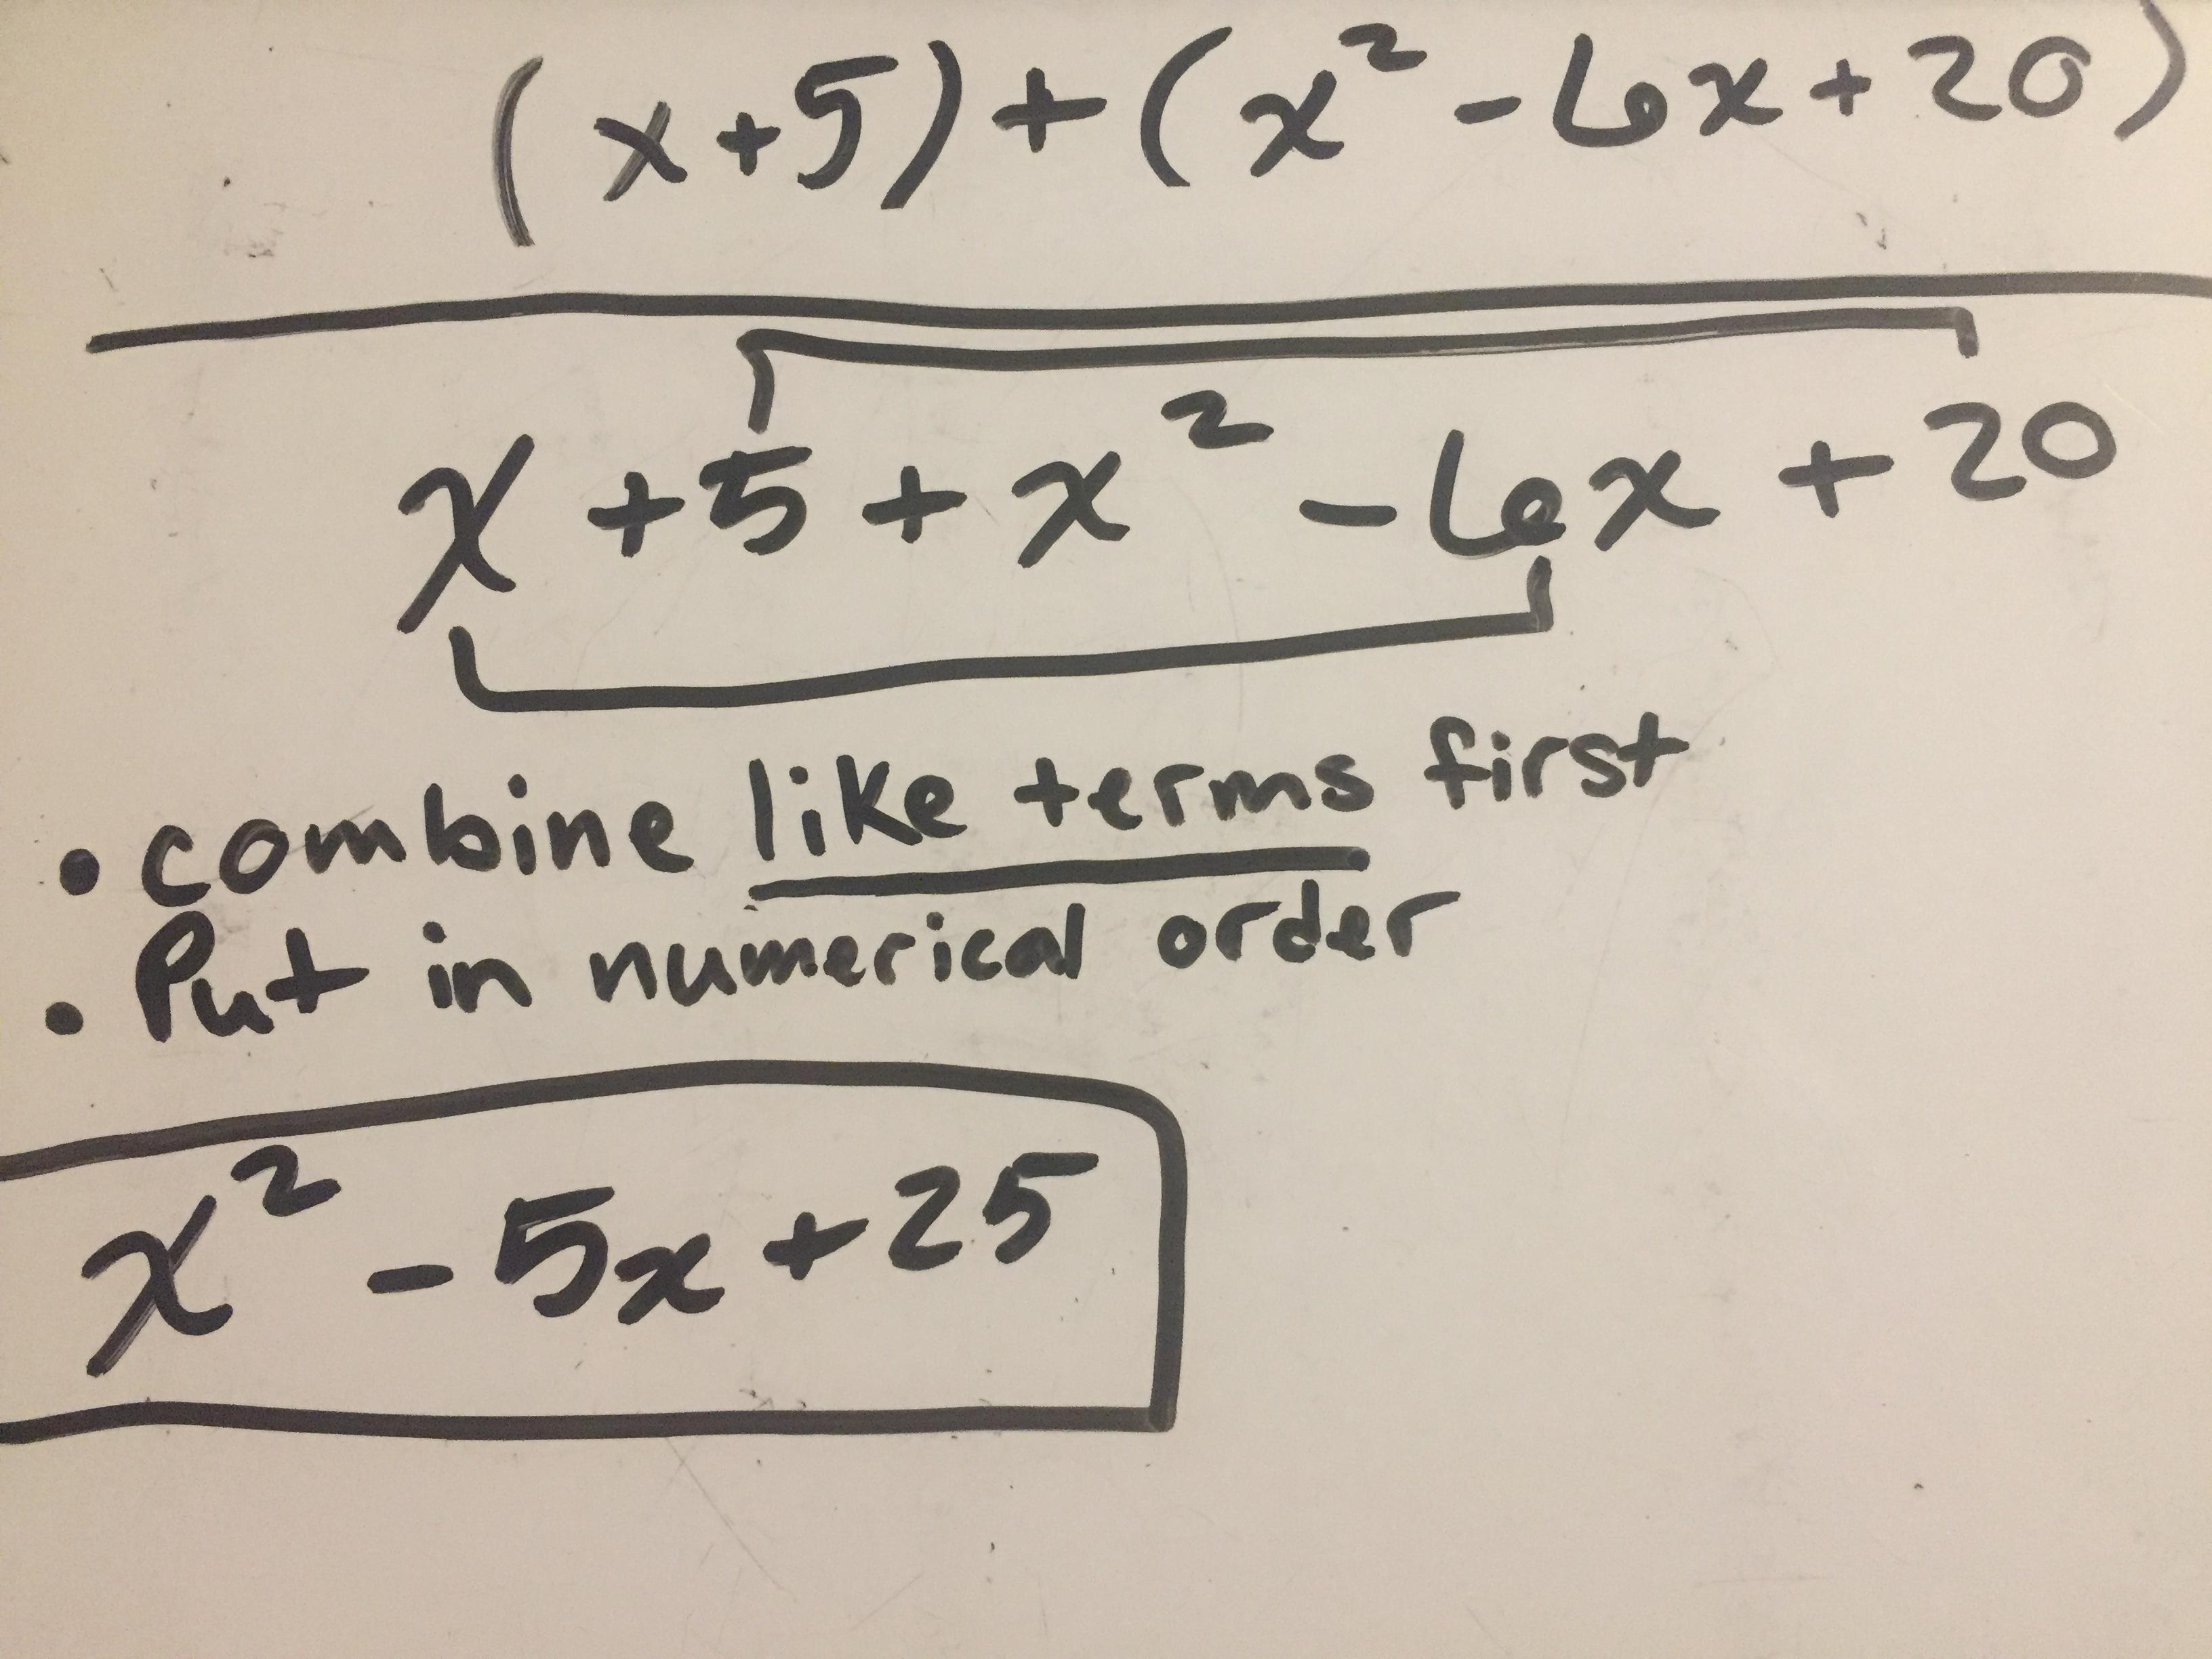 (x+5)+(x² - 6x + 20)
x + 5 + x² - 6x + 20
• combine like terms first
• Put in numerical order
x² - 5x + 25